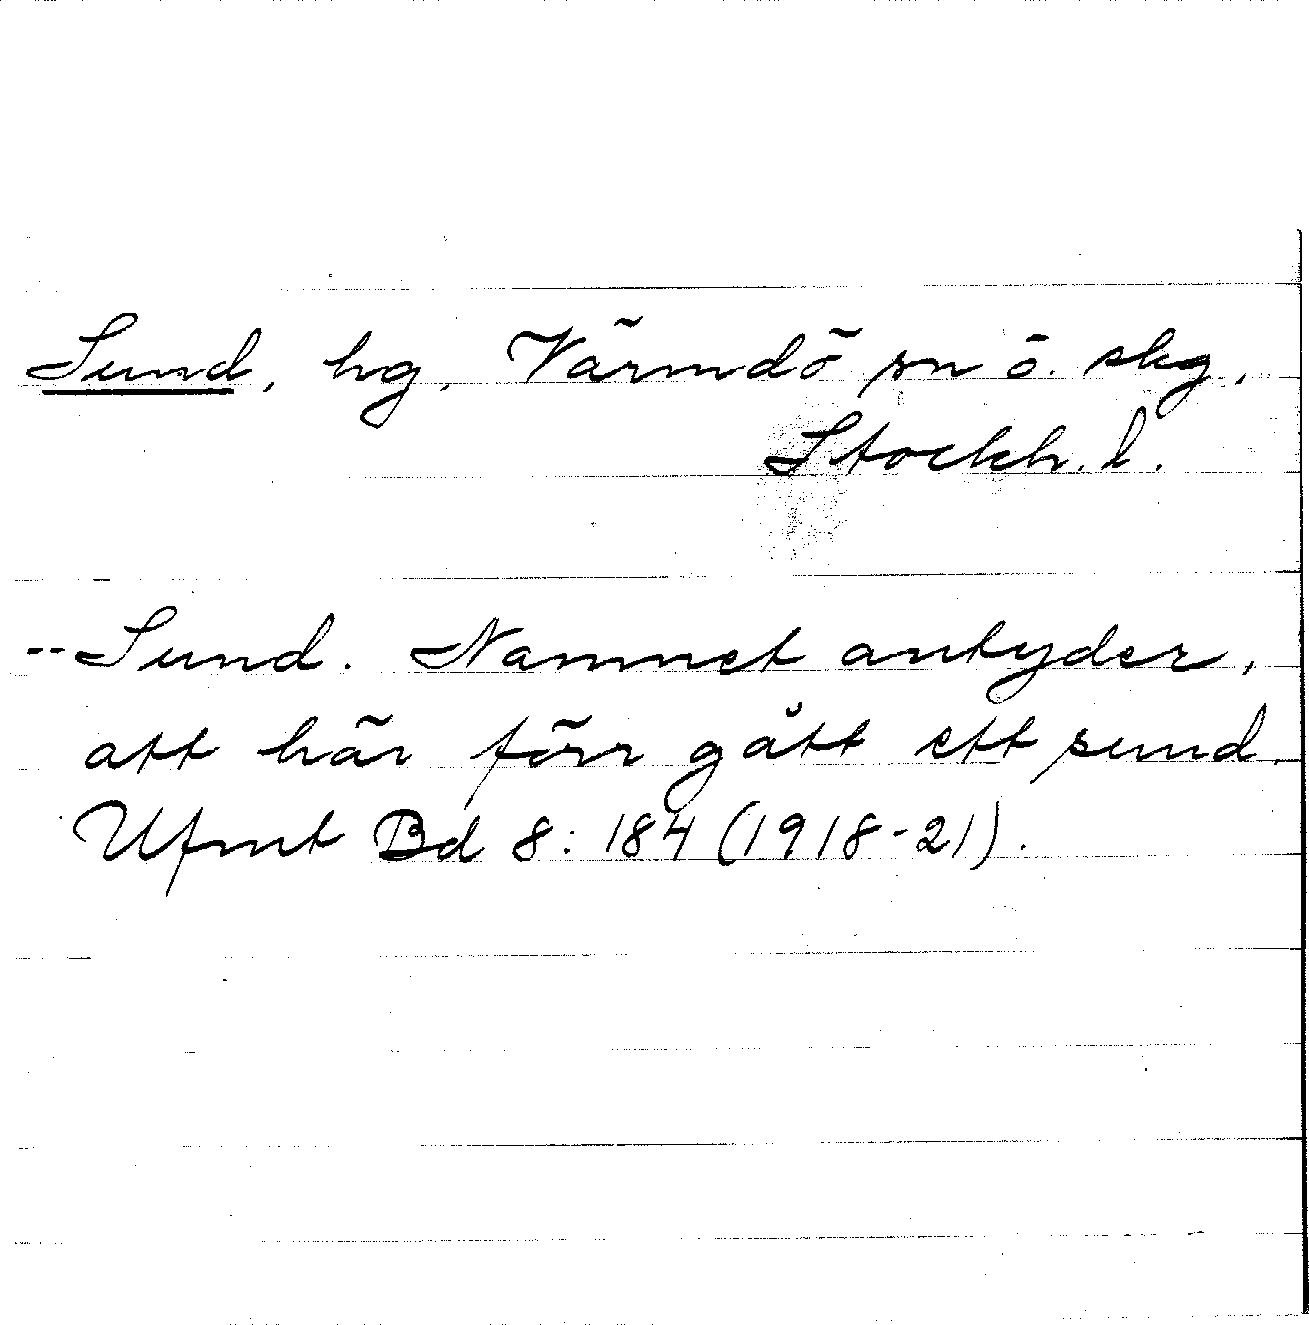 Sund, hg, Värmdö sn ö. skg,
Stockh. l.
-- Sund. Namnet antyder,
att här förr gått ett sund.
Ufmt Bd 8: 184 (1918-21).